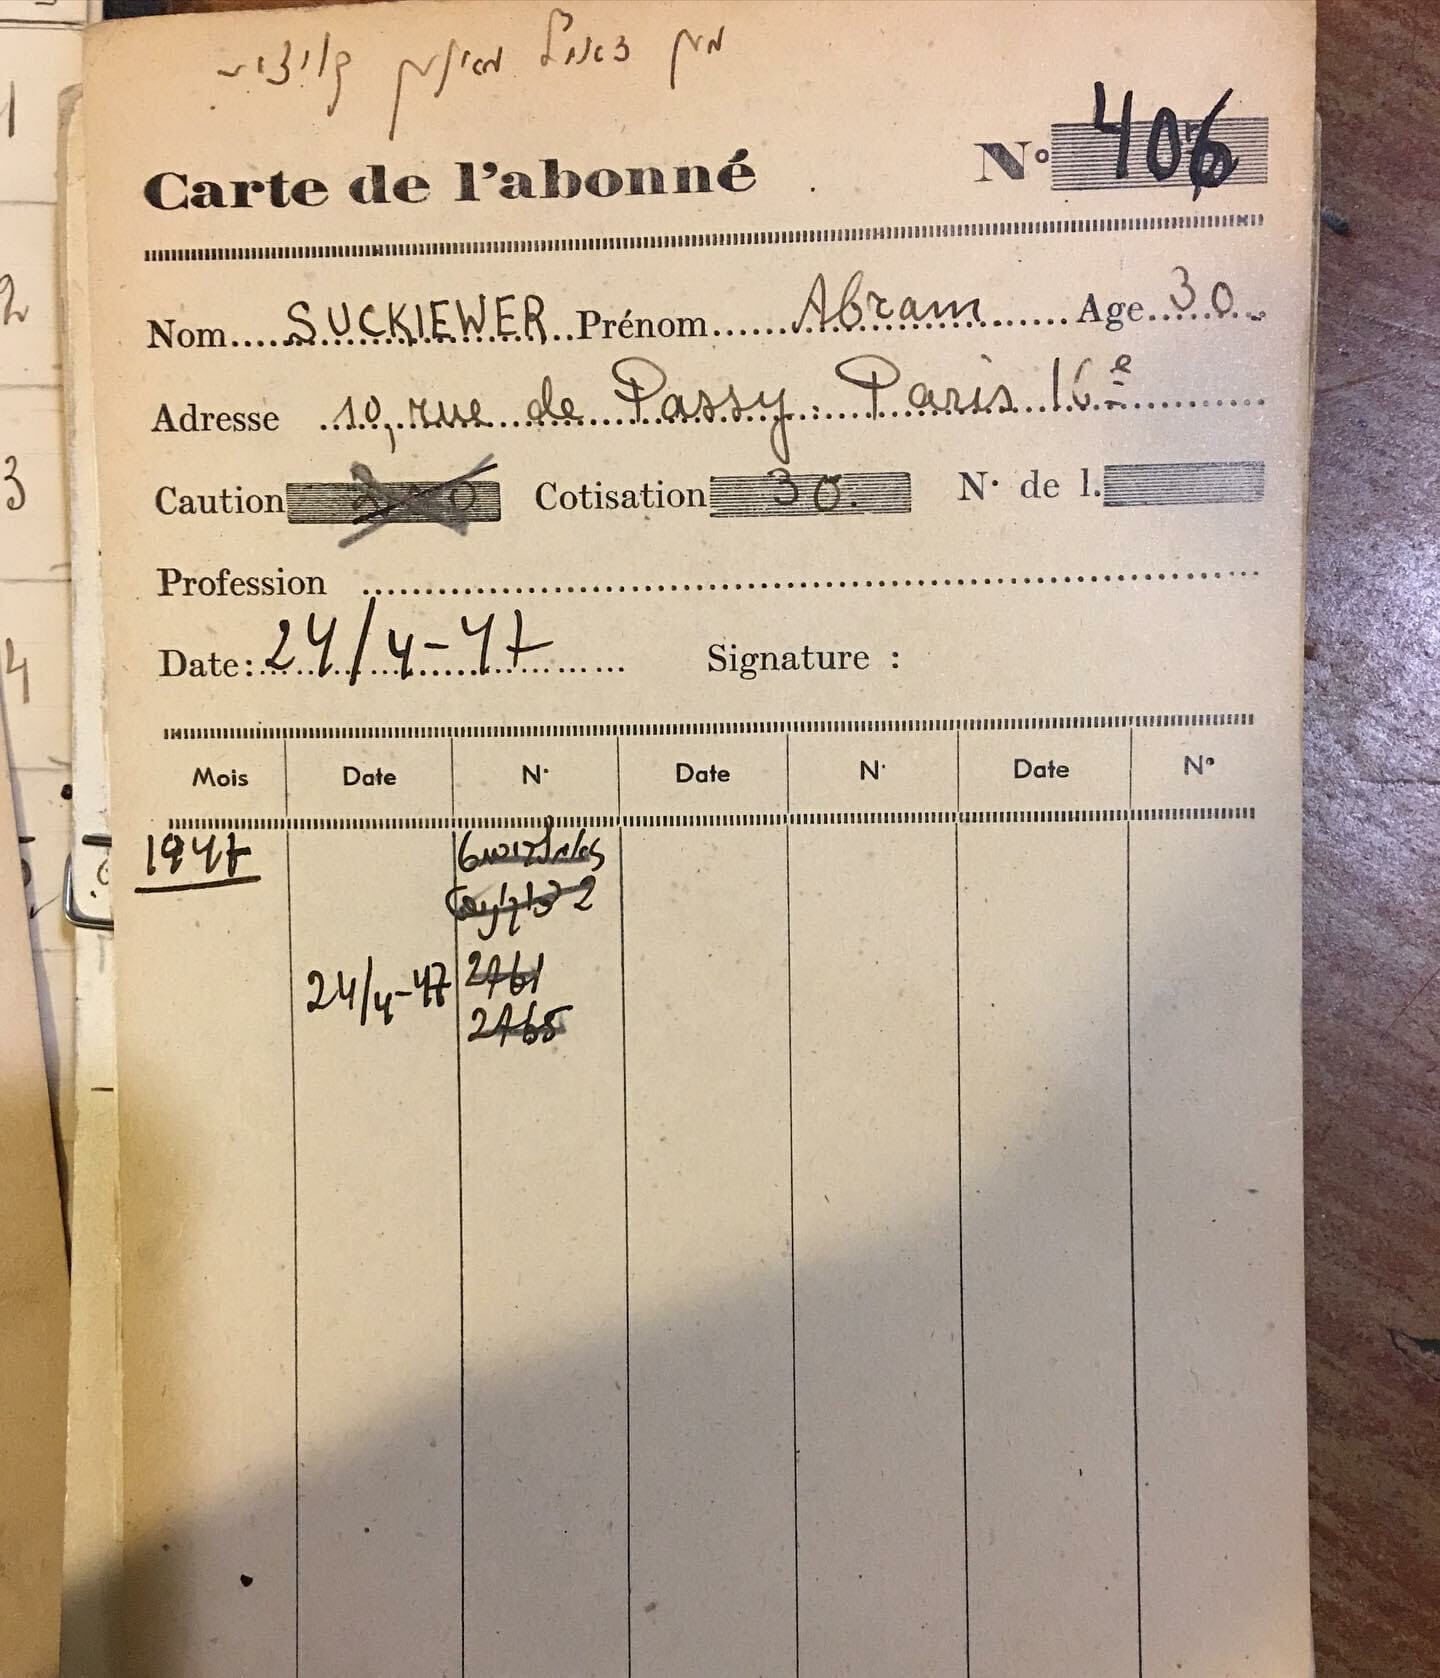 מען
Carte de l'abonné N° 406
Nom SUCKIEWER Prénom Abram Age 30
Adresse 10, rue de Passy : Paris 16e
Caution Cotisation 30. N. de l.
Profession
Date: 24/4-47 Signature :
Mois Date N. Date N. Date N°
1947
2
24/4-47 2761
2765
1
2
3
4